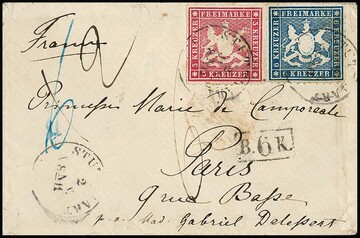 FREIMARKE
3 KREUZER
3 KREUZER
3 KREUZER
FREIMARKE
6 KREUZER
6 KREUZER
6 KREUZER
Franco
Princesse Marie de Camporeale
Paris
B.6K.
9 rue Basse
p. a. Mad. Gabriel Delessert
STU